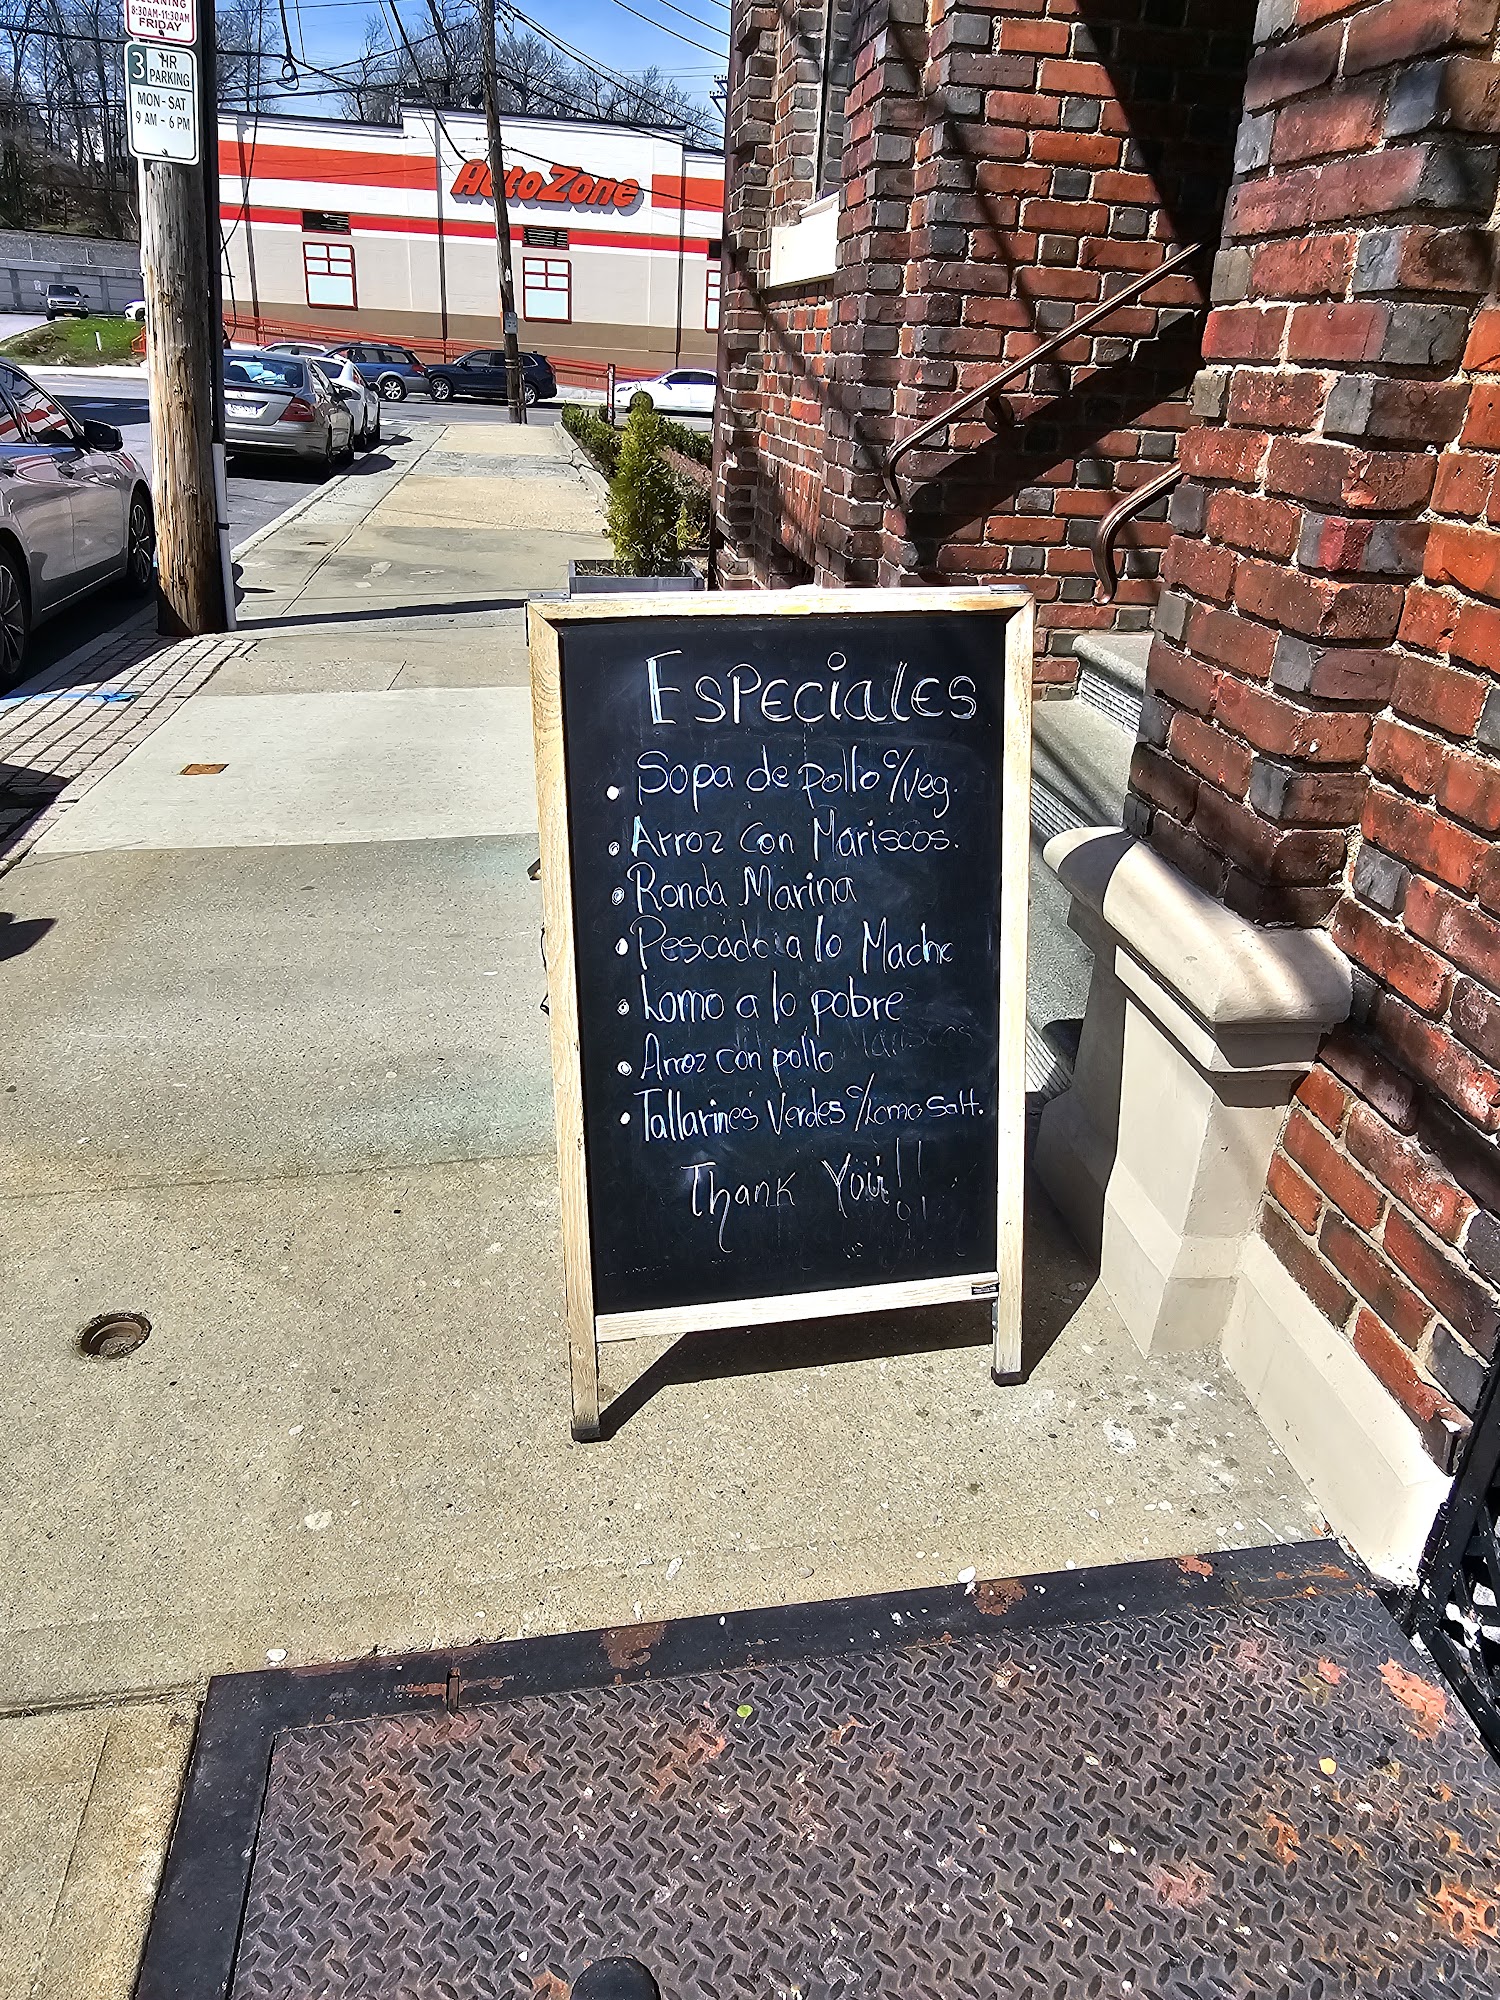 CLEANING
8:30AM-11:30AM
FRIDAY
3 HR
PARKING
MON - SAT
9 AM - 6 PM
AutoZone
Especiales
• Sopa de pollo c/veg.
• Arroz con Mariscos.
• Ronda Marina
• Pescado a lo Macho
• Lomo a lo pobre
• Arroz con pollo Mariscos
• Tallarines Verdes c/Lomo Salt.
Thank You!!